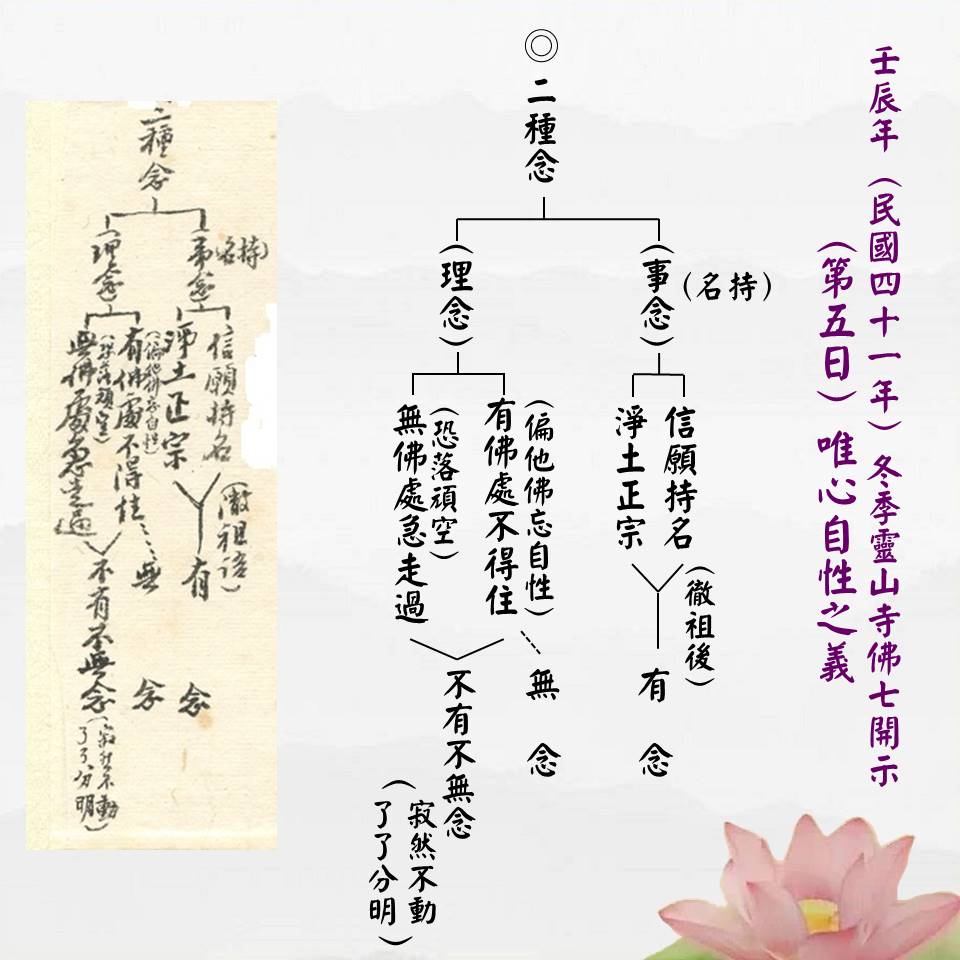 壬辰年（民國四十一年）冬季靈山寺佛七開示
（第五日）唯心自性之義
◎二種念
（事念）
（名持）
信願持名
淨土正宗
（徹祖後）
有念
（理念）
（偏他佛忘自性）
有佛處不得住
（恐落頑空）
無佛處急走過
無念
不有不無念
（寂然不動
了了分明）
二種念
事念
（名持）
信願持名
淨土正宗
（徹祖語）
有念
理念
（偏他佛忘自性）
有佛處不得住
（恐落頑空）
無佛處急走過
無念
不有不無念
（寂然不動
了了分明）